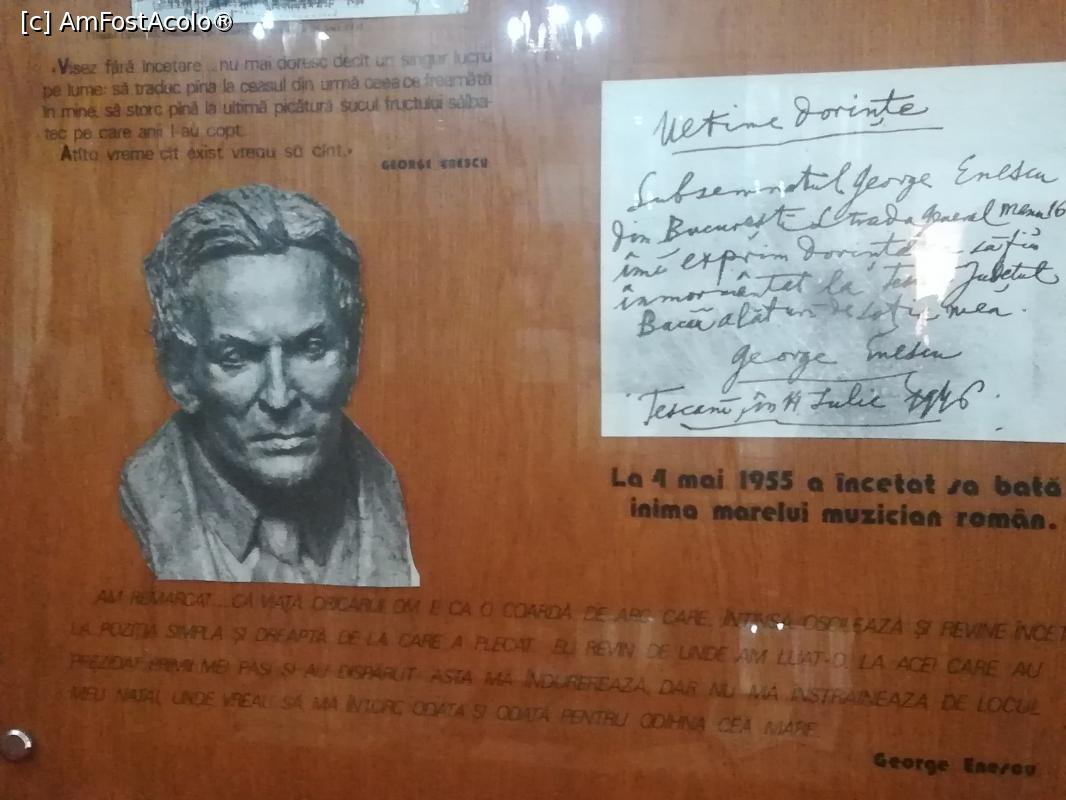 [c] AmFostAcolo®
«Visez fără încetare... nu mai doresc decît un singur lucru
pe lume: să traduc pînă la ceasul din urmă ceea ce freamătă
în mine, să storc pînă la ultimă picătură sucul fructului sălba-
tec pe care anii l-au copt.
Atîta vreme cît exist vreau să cînt.»
GEORGE ENESCU
Ultime dorințe
Subsemnatul George Enescu
din București Strada General Manu 16
îmi exprim dorința să fiu
înmormântat la Județul
Bacău alături de soția mea.
George Enescu
Tescani, în 14 Iulie 1946.
La 4 mai 1955 a încetat sa bată
inima marelui muzician român.
AM REMARCAT... CĂ VIAȚA ORICĂRUI OM E CA O COARDĂ DE ARC CARE, ÎNTINSĂ OSCILEAZĂ ȘI REVINE ÎNCET
LA POZIȚIA SIMPLĂ ȘI DREAPTĂ DE LA CARE A PLECAT. EU REVIN DE UNDE AM LUAT-O, LA ACEI CARE AU
PREZIDAT PRIMII MEI PAȘI ȘI AU DISPĂRUT. ASTA MĂ ÎNDUREREAZĂ, DAR NU MĂ ÎNSTRĂINEAZĂ DE LOCUL
MEU NATAL UNDE VREAU SĂ MĂ ÎNTORC ODATĂ ȘI ODATĂ PENTRU ODIHNA CEA MARE.
George Enescu